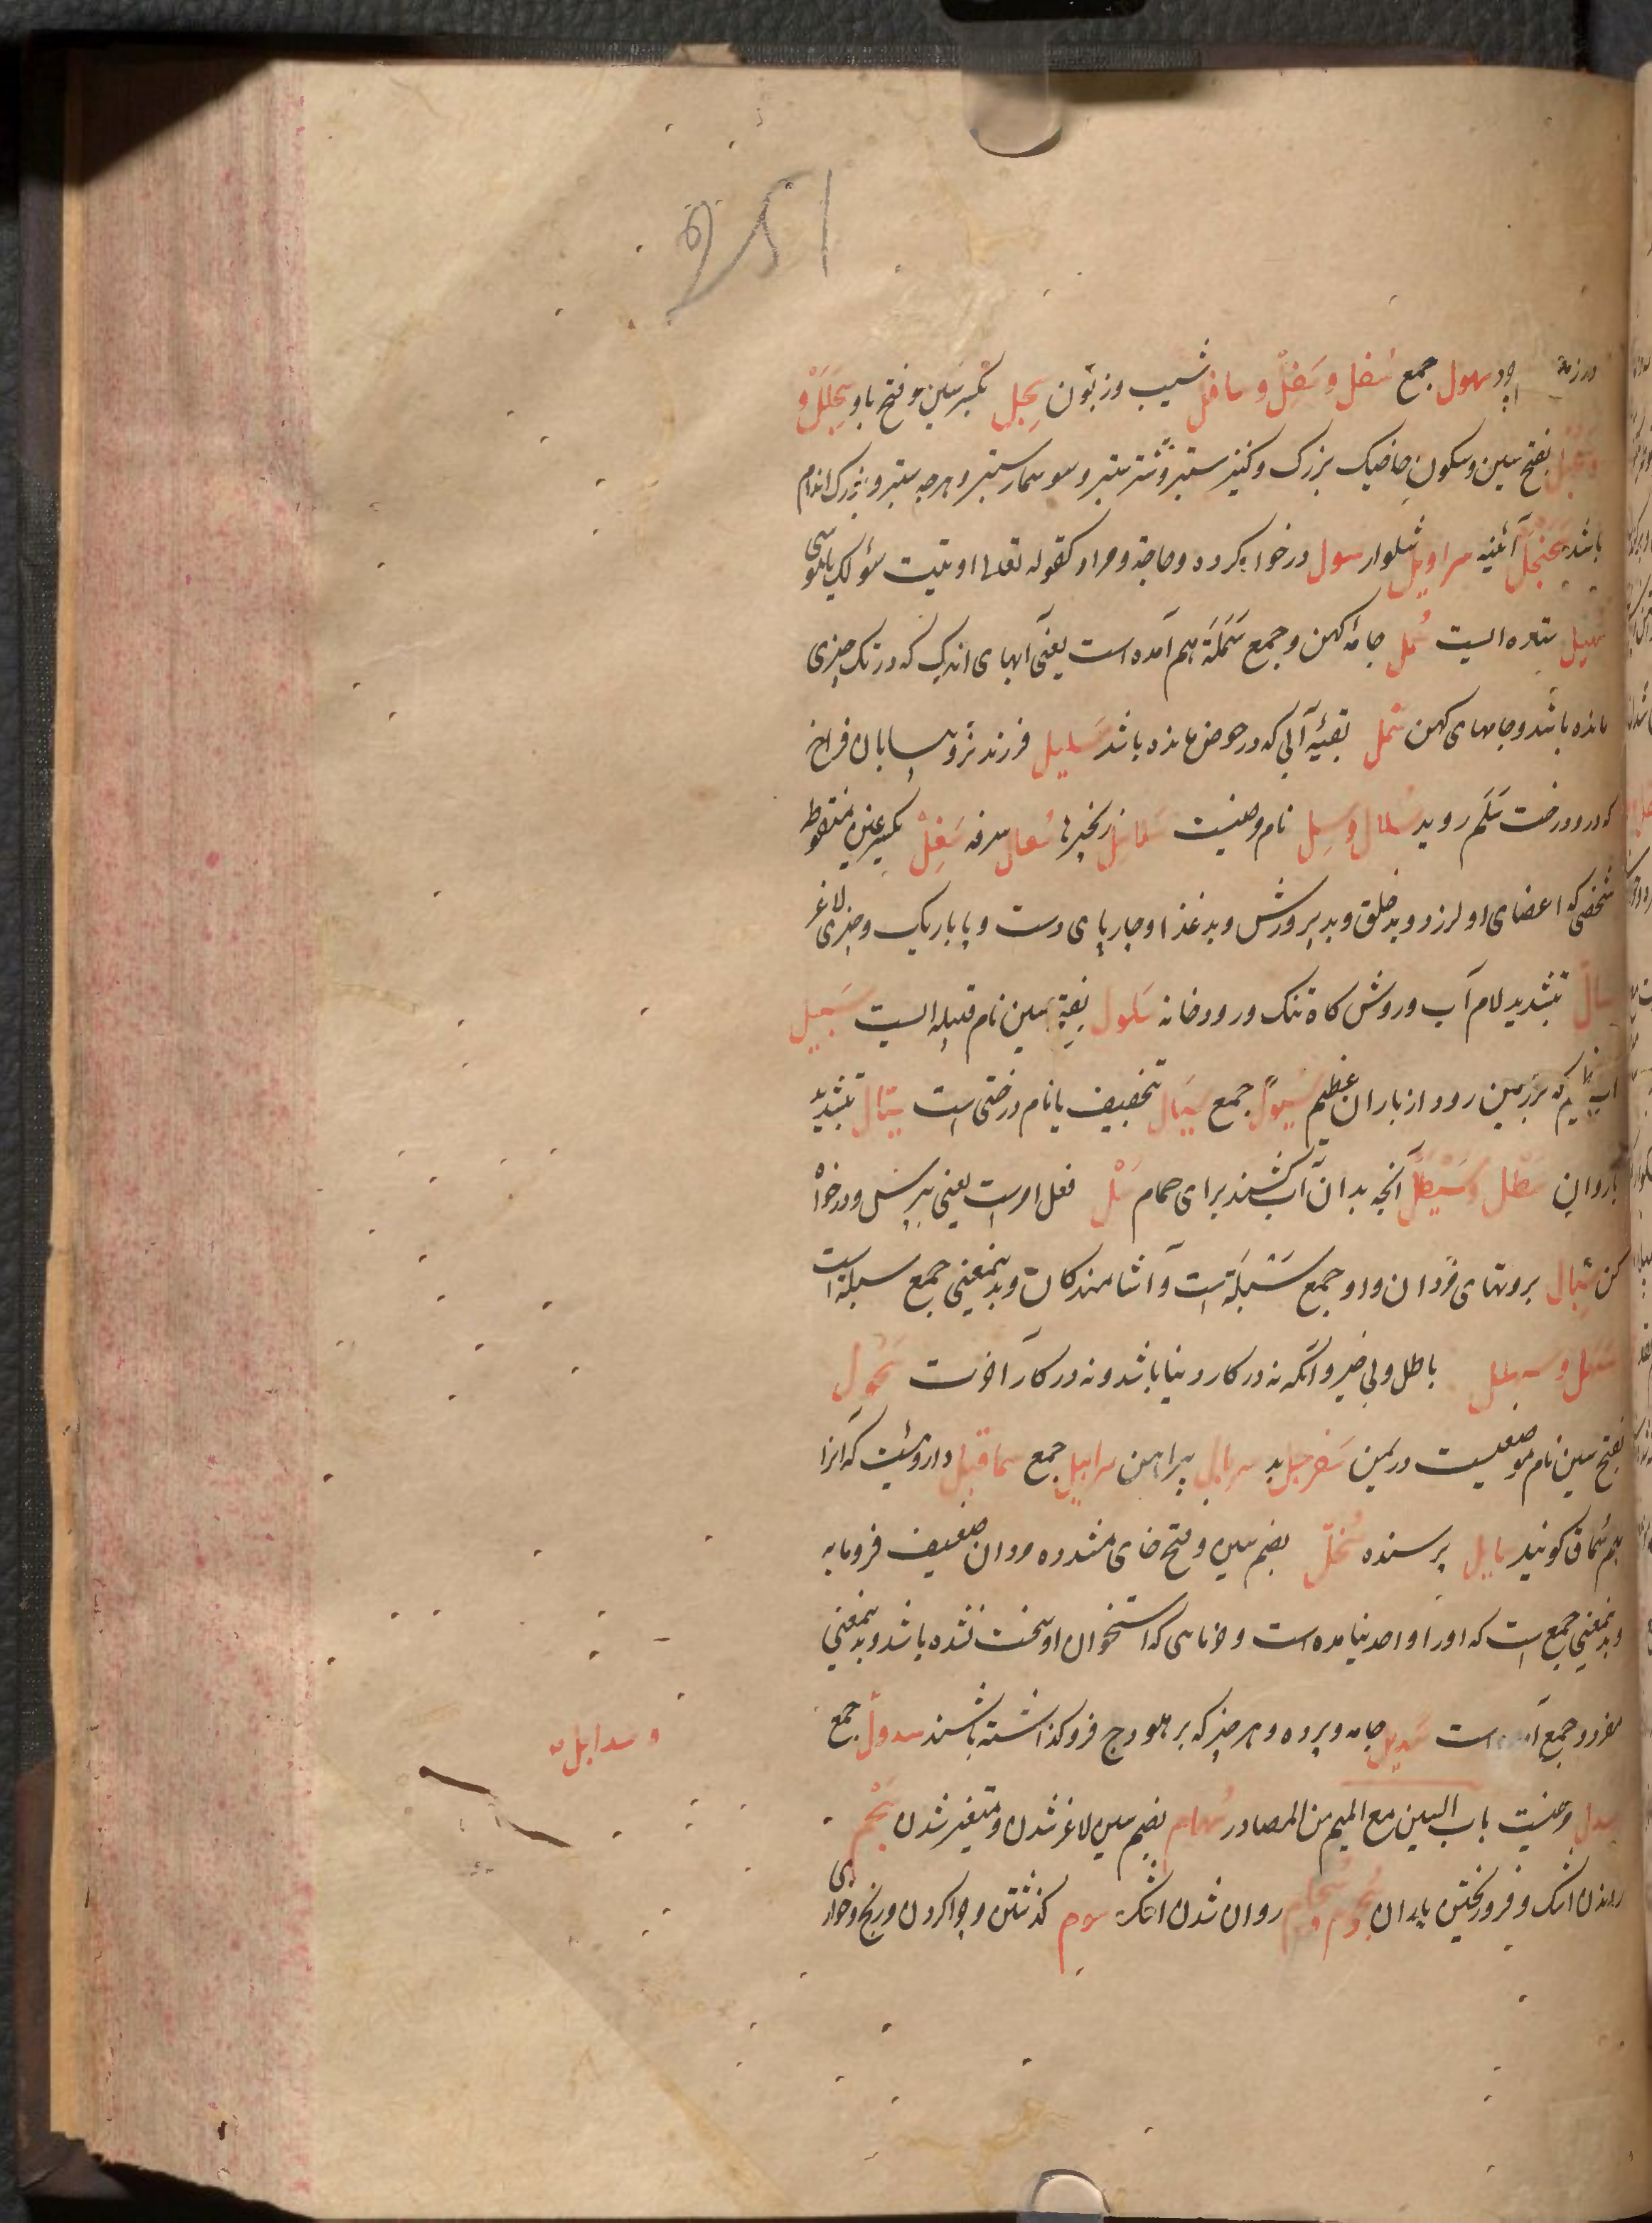 اود سهول جمع سُفل و سَفِلٌ و سافل شیب و زبون سِبَحل بکسر سین و فتح با و سَبَحلَلْ و
بفتح سین و سکون خیک بزرک و کنیز ستبر و شتر ستبر و سوسمار ستبر و هرچه ستبر و بزرک اندام
باشد سجنجل آئینه سراویل شلوار سول درخواه کرده و حاجة و مراد کقوله تعالی اوتیت سؤلک یا موسی
سهیل ستاره ایست سُمل جامهٔ کهن و جمع سَمَلَة هم آمده است یعنی آبهای اندک که در تک چیزی
مانده باشد و جامهای کهن سمل بقیهٔ آبی که در حوض مانده باشد سَلیل فرزند نر و بیابان فراخ
که درو درخت سَلَم روید سلال و سِل نام رضیست سلاسل زنجیرها سُعال سرفه سَغِلْ بکسر غین منقوطه
شخصی که اعضای او لرزد و بدخلق و بدپرورش و بدغذا و چارپای دست و پا باریک و چیزی لاغر
سالّ بتشدید لام آب و روش کاه تنک و رودخانه سَلول بفتح سین نام قبیله ایست سَجیل
آب که بر زمین رود از باران عظیم سیولٌ جمع سَیال بتخفیف یا نام درختی است سیّال بتشدید
یا روان سَطل و سَیطل آنچه بدان آب کشند برای حمام سَلْ فعل امرست یعنی بپرس و درخواه
کن سِبال بروتهای مردان و او جمع سَبَلَة است و آشامندکان و بدینمعنی جمع سبله است
سَبهلل باطل و بی خیر و آنکه نه در کار دنیا باشد و نه در کار آخرت سَحول
بفتح سین نام موضعیست در یمن سَفرجل به سربال پیراهن سرابیل جمع سماقیل داروئیست که آنرا
هم سُماق کویند سایل پرسنده سُخّل بضم سین و فتح خای مشدده مردان ضعیف فرومایه
و بدینمعنی جمع است که اورا واحد نیامده است و خرمایی که استخوان او سخت نشده باشد و بدینمعنی
مفرد و جمع آمده است سَدیل جامه و پرده و هر چیز که بر هودج فرو کذاشته باشند سدولٌ جمع
و سدایل
سدل وضیت باب السین مع المیم من المصادر سُهام بضم سین لاغر شدن و متغیر شدن سَجْم
راندن اشک و فرو ریختن باران سُجوم و سجام روان شدن اشک سوم کذشتن و چرا کردن و رنج و خواری